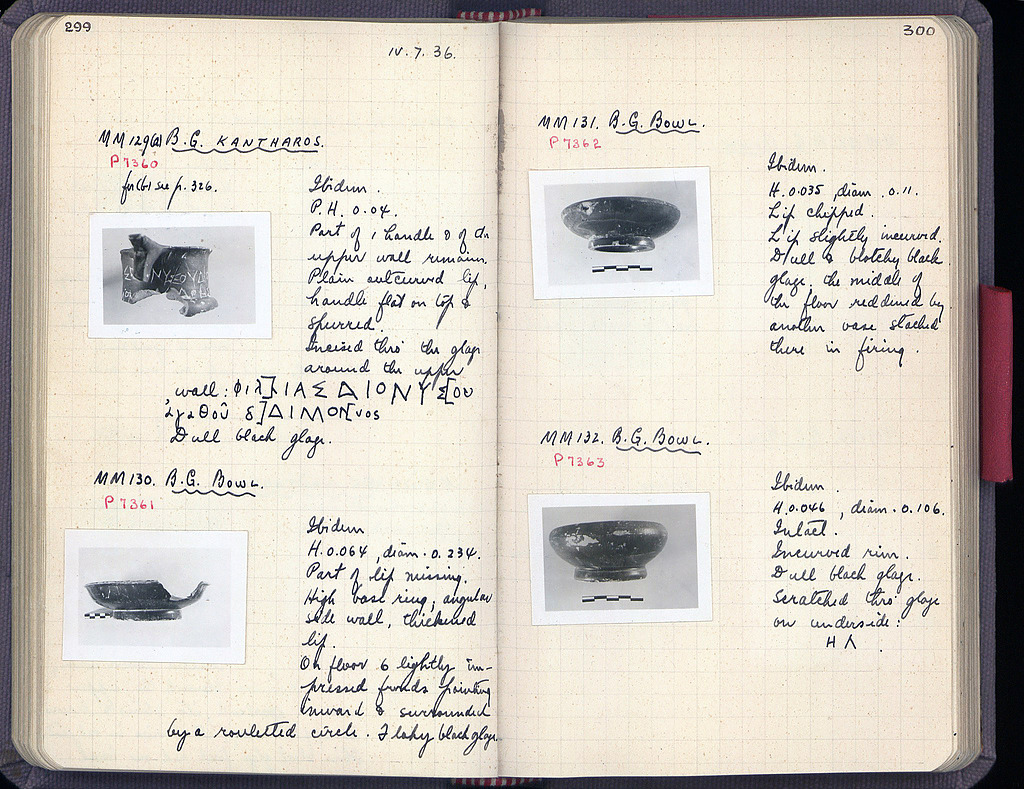 299
IV. 7. 36.
MM 129(a) B.G. KANTHAROS.
P 7360
for (b) see p. 326.
Ibidem.
P.H. 0.04.
Part of 1 handle & of the
upper wall remain.
Plain outcurved lip,
handle flat on top &
spurred.
Incised thro' the glaze
around the upper
wall: φιλ]ΙΑΣ ΔΙΟΝΥΣ[ου
ἀγαθοῦ δ]ΔΙΜΟΝ[νος
Dull black glaze.
MM 130. B.G. BOWL.
P 7361
Ibidem
H. 0.064, diam. 0.234.
Part of lip missing.
High base ring, angular
side wall, thickened
lip.
On floor 6 lightly im-
pressed fronds pointing
inward & surrounded
by a rouletted circle. Flaky black glaze.
300
MM 131. B.G. BOWL.
P 7362
Ibidem.
H. 0.035, diam. 0.11.
Lip chipped.
Lip slightly incurved.
Dull & blotchy black
glaze, the middle of
the floor reddened by
another vase stacked
there in firing.
MM 132. B.G. BOWL.
P 7363
Ibidem.
H. 0.046, diam. 0.106.
Intact.
Incurved rim.
Dull black glaze.
Scratched thro' glaze
on underside:
Η Λ